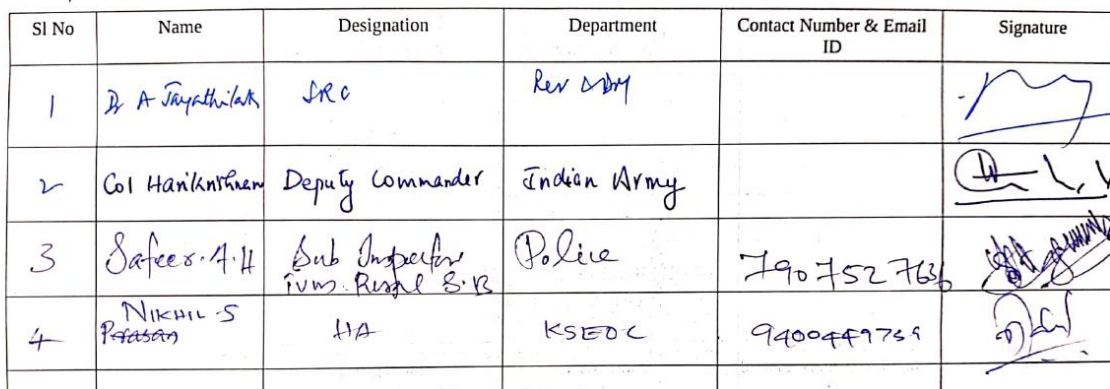 Sl No Name Designation Department Contact Number & Email ID Signature
1 Dr A Jayathilak SRC Rev & DM
2 Col Harikrishnan Deputy Commander Indian Army
3 Safeer.A.H Sub Inspector Police 7907527636
Tvm. Rural S.B
4 NIKHIL S HA KSEOC
Prasan